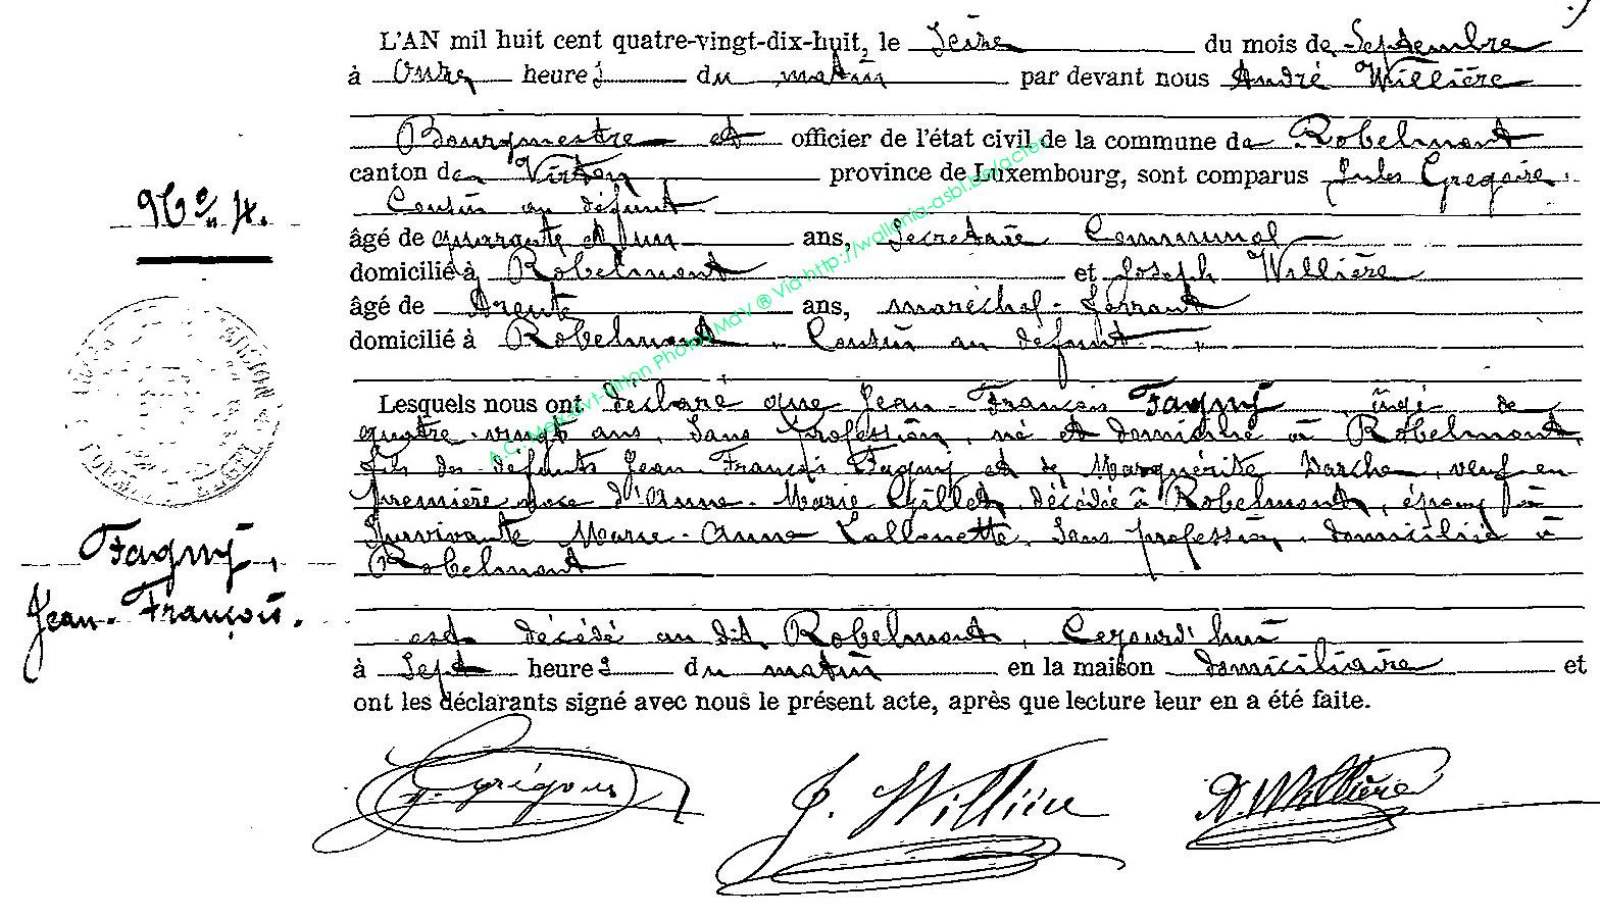 L'AN mil huit cent quatre-vingt-dix-huit, le seize du mois de Septembre
à onze heures du matin par devant nous André Willière
Bourgmestre et officier de l'état civil de la commune de Robelmont
canton de Virton province de Luxembourg, sont comparus Jules Gregoire.
Cousin au défunt
N° 4.
âgé de quarante et un ans, Secretaire Communal
domicilié à Robelmont et Joseph Willière
âgé de trente ans, maréchal-ferrant
domicilié à Robelmont, Cousin au défunt
Lesquels nous ont déclaré que Jean-François Fagny âgé de
quatre-vingt ans, sans profession, né et domicilié à Robelmont,
fils des défunts Jean François Fagny et de Marguérite, veuf en
première noce d'Anne-Marie Gillet, décédée à Robelmont, époux à
survivante Marie-Anne Lallouette, sans profession, domicilié à
Robelmont
Fagny,
Jean-François.
est décédé au dit Robelmont, cejourd'hui
à sept heures du matin en la maison domiciliaire et
ont les déclarants signé avec nous le présent acte, après que lecture leur en a été faite.
J. Grégoire J. Willière A. Willière